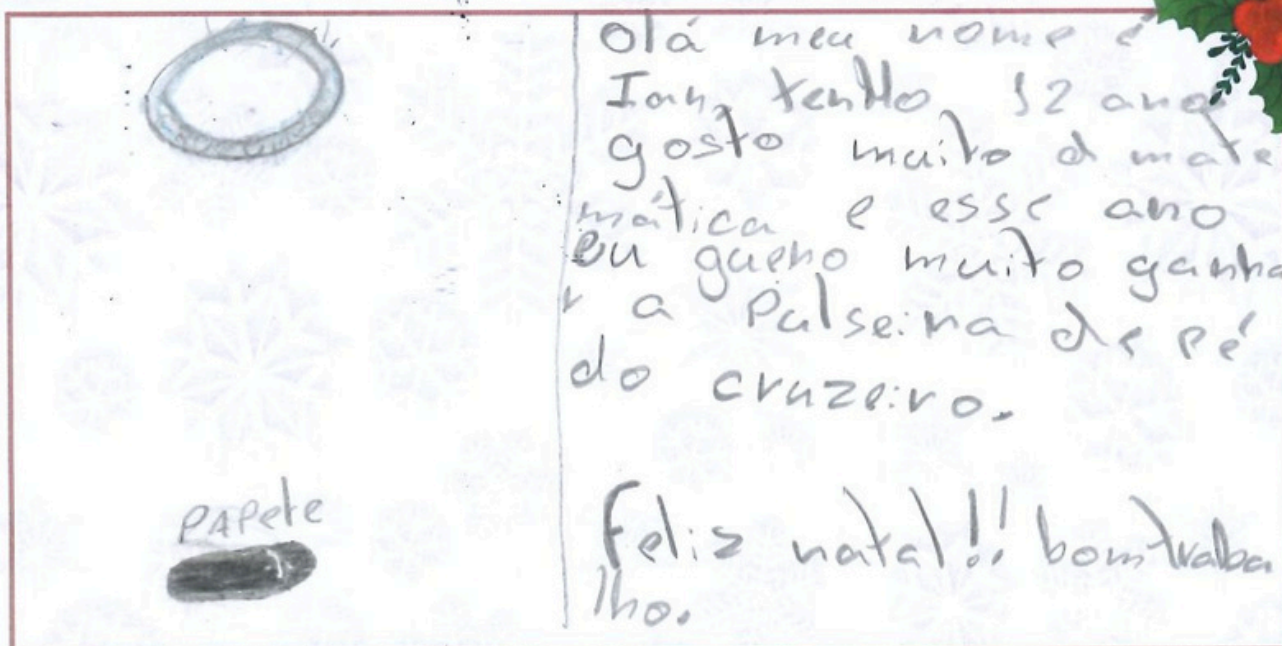 PAPete
olá meu nome é
Ian, tenho 12 ano
gosto muito d mate
mática e esse ano
eu quero muito ganha
r a Pulseira de pé
do cruzeiro.
feliz natal!! bom traba
lho.